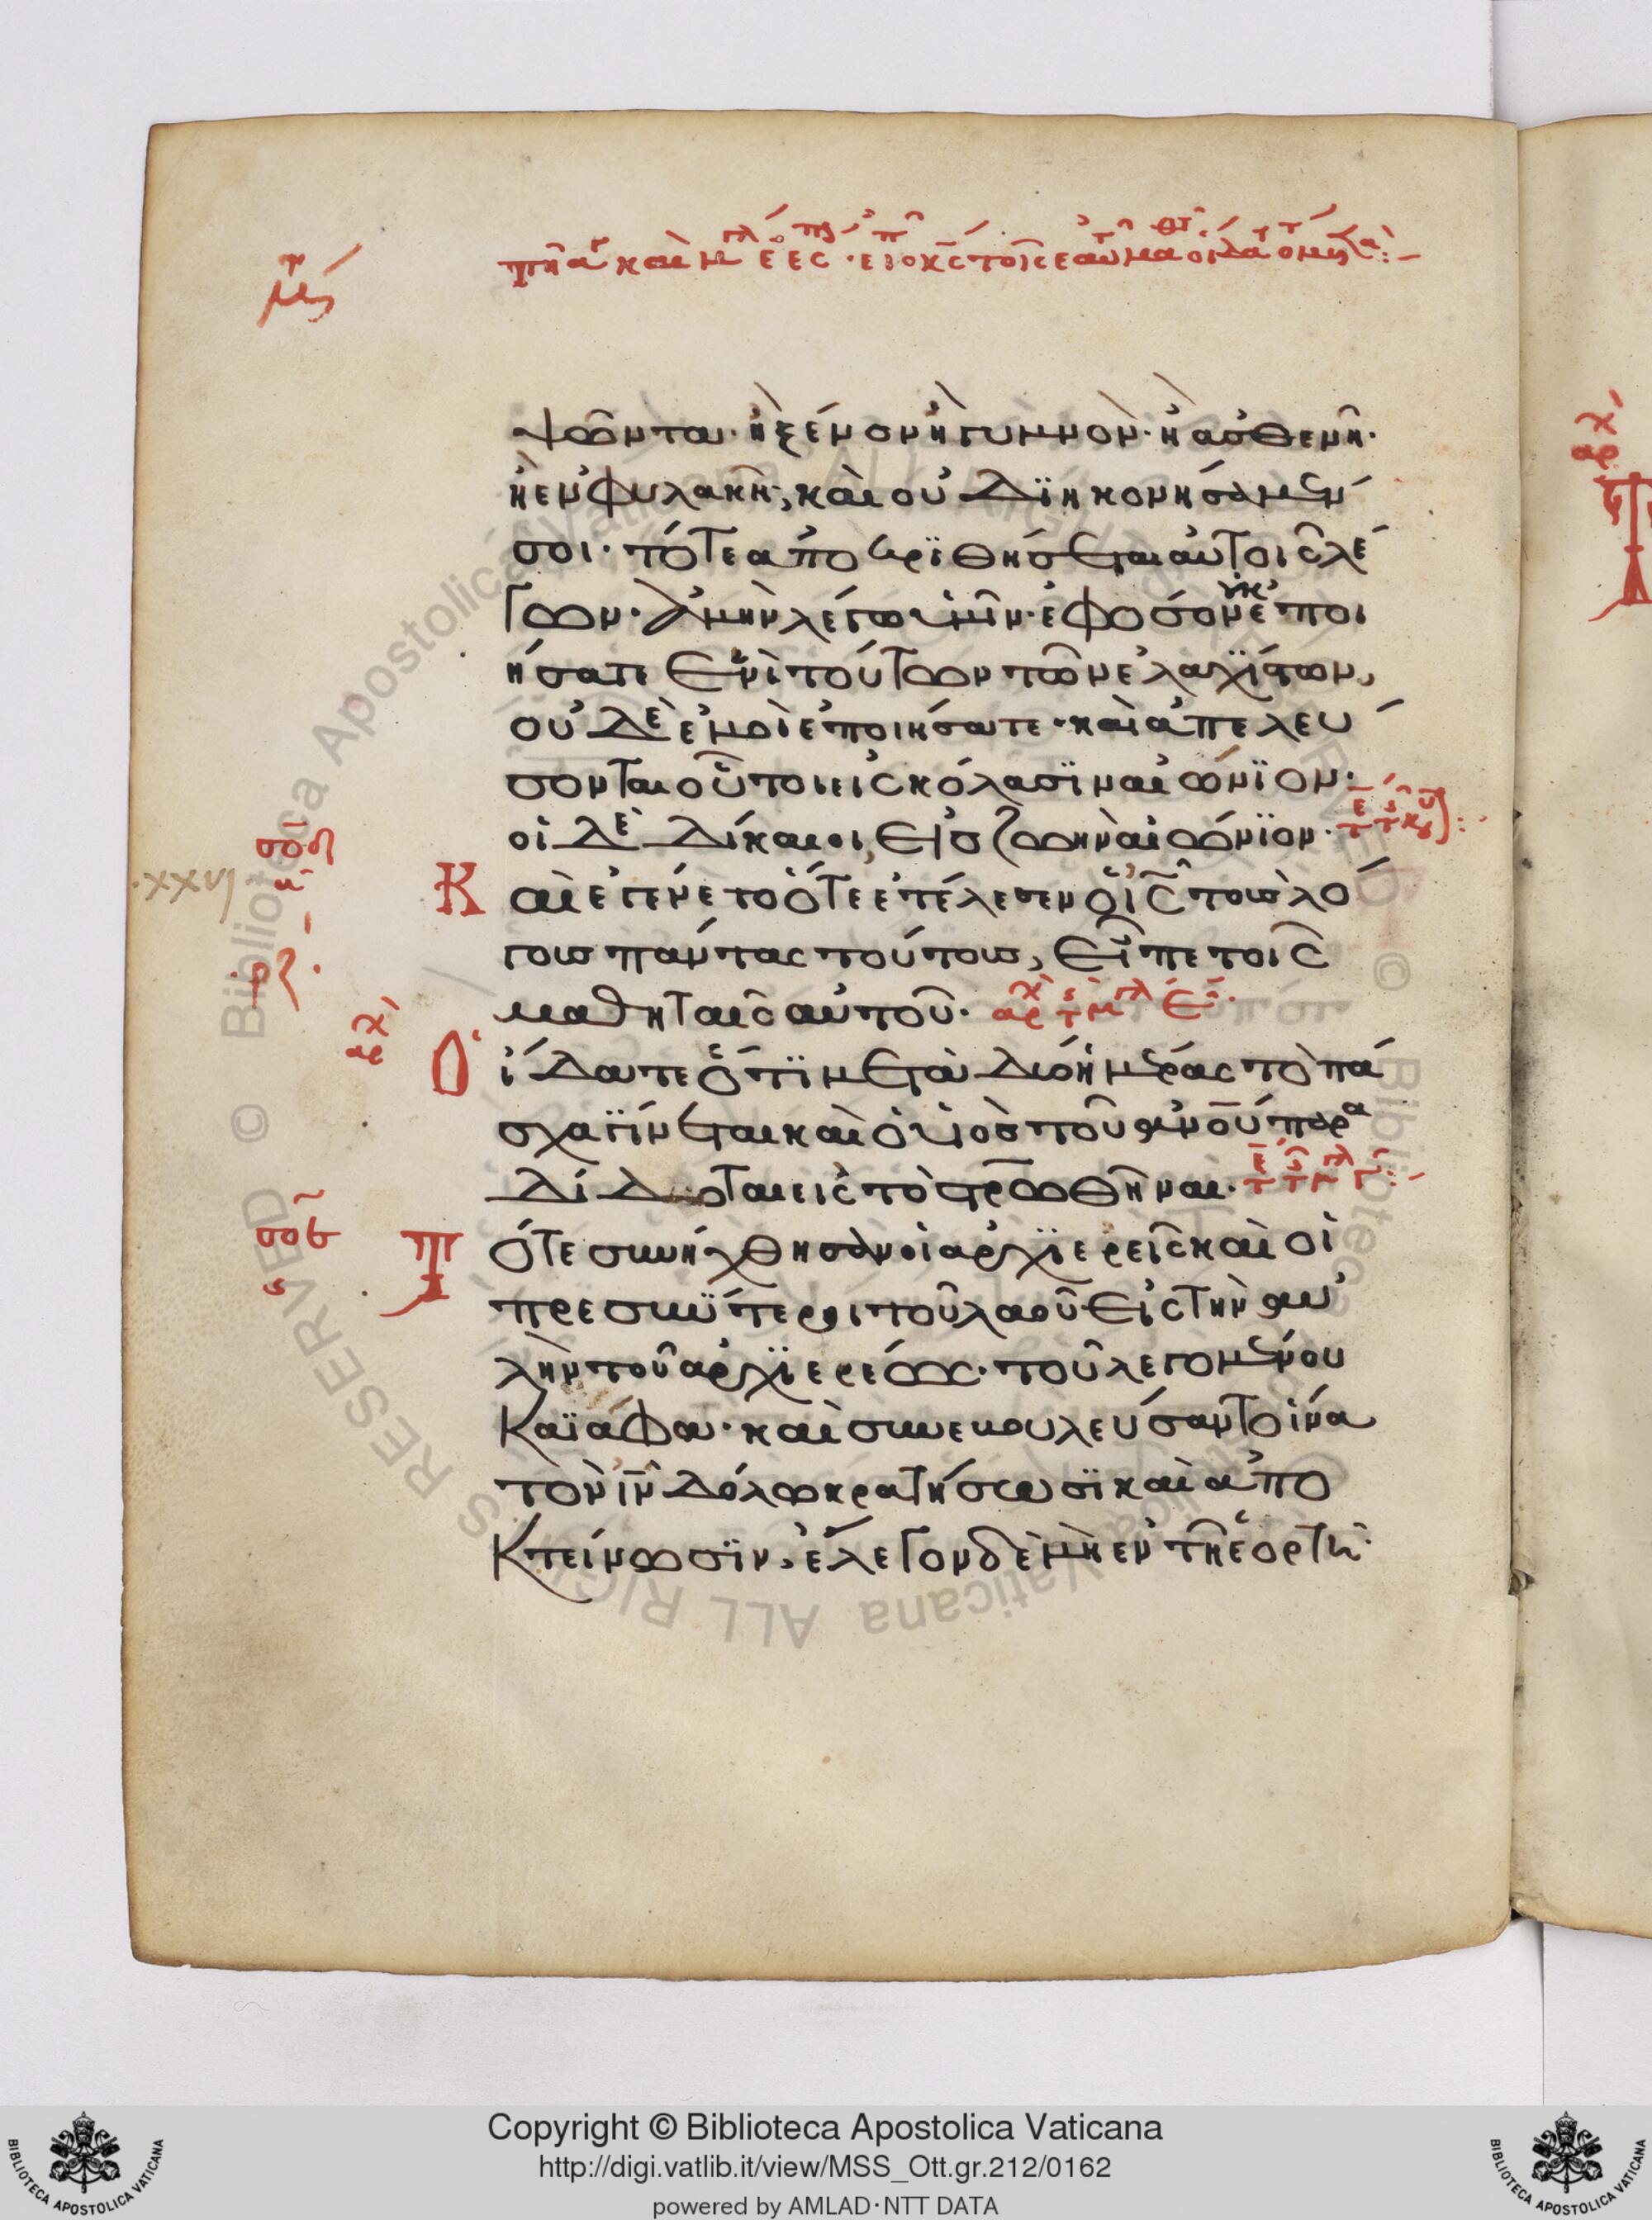 ψῶντα· ἢ ξένον ἢ γυμνὸν· ἢ ἀσθενῆ·
ἢ ἐν φυλακῆ, καὶ οὐ διηκονήσαμέν
σοι· τότε ἀποκριθήσεται αὐτοῖς λέ
γων· ἀμὴν λέγω ὑμῖν· ἐφ ὅσον οὐκ ἐποι
ήσατε ἑνὶ τούτων τῶν ἐλαχίστων,
οὐδὲ ἐμοὶ ἐποιήσατε· καὶ ἀπελεύ
σονται οὗτοι εἰς κόλασϊν αἰώνϊον·
οἱ δὲ δίκαιοι, εἰς ζωὴν αἰώνϊον·
σοη
α
·XXVI
Καὶ ἐγένετο ὅτε ἐτέλεσεν ὁ ις τοὺς λό
γους πάντας τούτους, εἶπε τοῖς
μαθηταῖς αὐτοῦ·
αρχ
Οἴδατε ὅτϊ μετὰ δύο ἡμέρας τὸ πά
σχα γίνεται καὶ ὁ υἱὸς τοῦ ανου παρα
δίδοται εἰς τὸ στρωθῆναι·
σοθ
ϛ
Τότε συνήχθησαν οἱ ἀρχϊερεῖς καὶ οἱ
πρεσβϋτεροι τοῦ λαοῦ εἰς τὴν αὐ
λὴν τοῦ ἀρχϊερέως· τοῦ λεγομένου
Καϊάφα· καὶ συνεβουλεύσαντο ἵνα
τὸν ιν δόλω κρατήσωσϊ καὶ ἀπο
κτείνωσϊν, ἔλεγον δὲ μὴ ἐν τῆ ἑορτῆ·
Copyright © Biblioteca Apostolica Vaticana
http://digi.vatlib.it/view/MSS_Ott.gr.212/0162
powered by AMLAD·NTT DATA
BIBLIOTECA APOSTOLICA VATICANA
BIBLIOTECA APOSTOLICA VATICANA